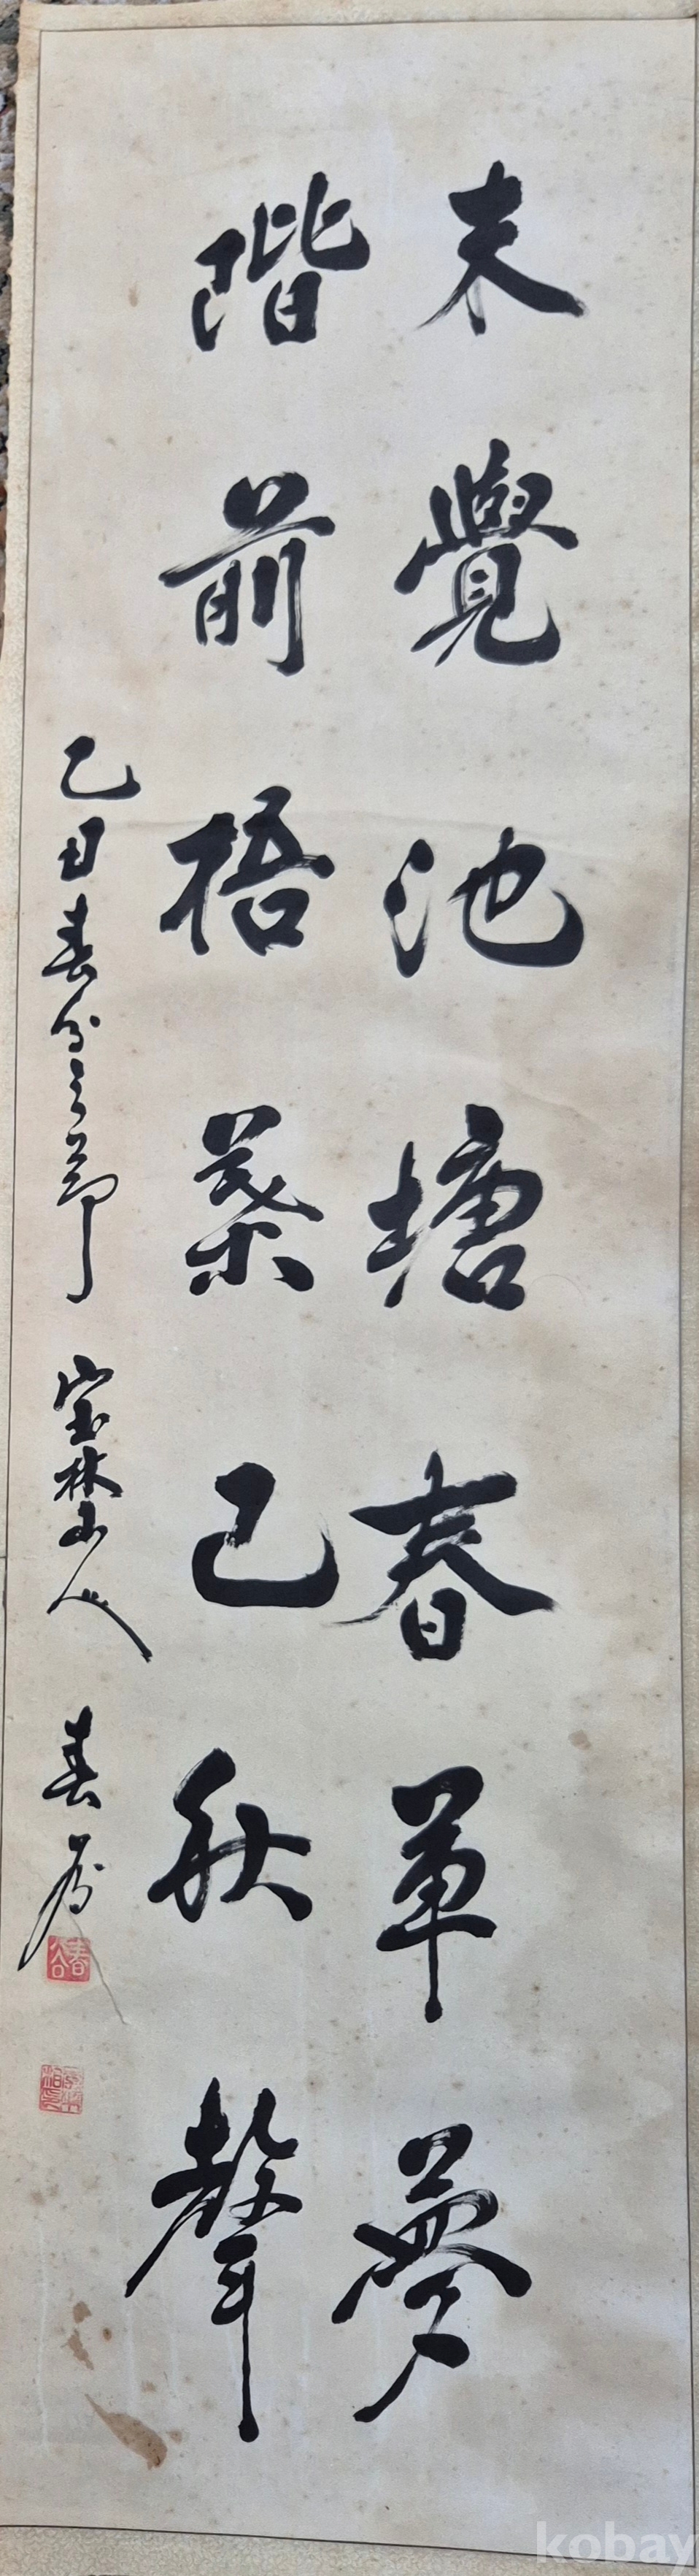 未覺池塘春草夢
階前梧葉已秋聲
乙丑春分之節 宝林山人 春谷
春谷
kobay